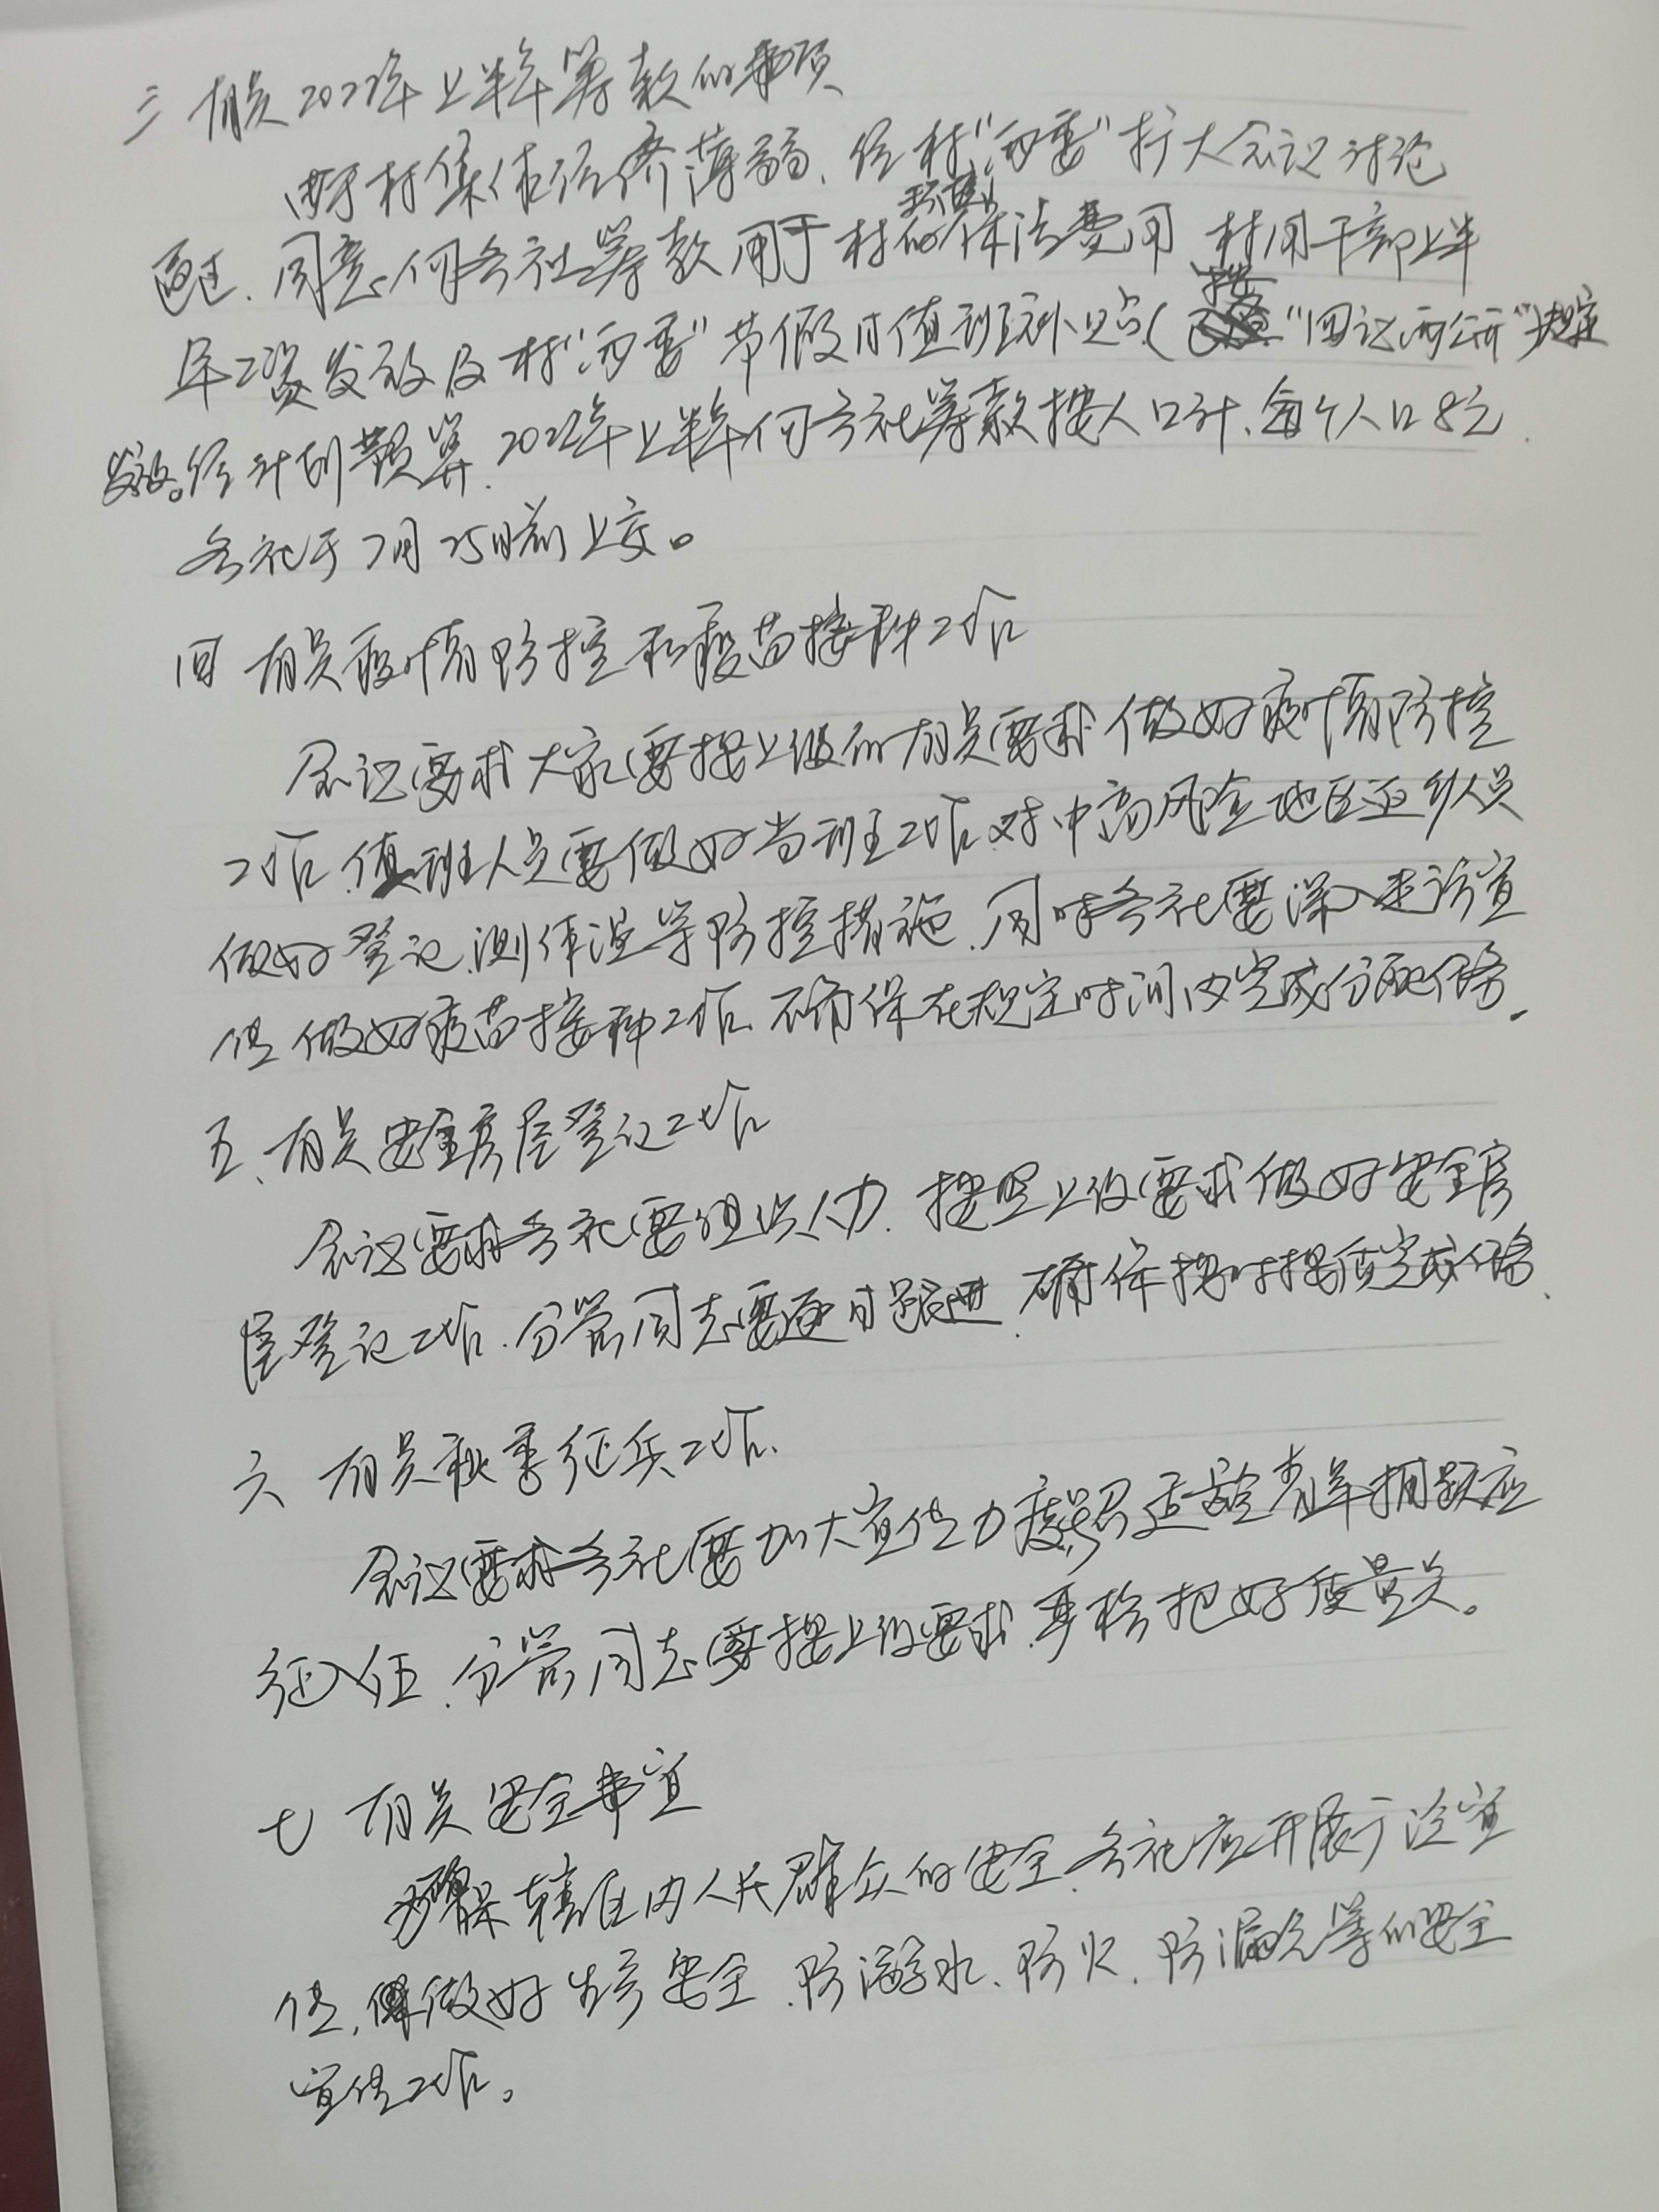 三 有关2022年上半年筹款的事项
由于村集体经济薄弱、经村“两委”扩大会议讨论
通过、同意向各社筹款用于村环境保洁费用 村用干部上半
年工资发放及村“两委”节假日值班补贴(按“四议两公开”规定
发放。经计划预算、2022年上半年向各社筹款按人口计、每个人口8元、
各社于7月25日前上交。
四 有关疫情防控和疫苗接种工作
会议要求大家要按上级的有关要求做好疫情防控
工作、值班人员要做好当班工作、对中高风险地区返乡人员
做好登记、测体温等防控措施、同时各社要深入走访宣
传 做好疫苗接种工作、确保在规定时间内完成分配任务、
五、有关安全房屋登记工作
会议要求各社要组织人力、按照上级要求做好安全房
屋登记工作、分管同志要逐日跟进、确保按时按质完成任务、
六 有关秋季征兵工作、
会议要求各社要加大宣传力度号召适龄青年踊跃应
征入伍、分管同志要按上级要求、严格把好质量关。
七 有关安全事宜
为确保辖区内人民群众的安全、各社应开展广泛宣
传、做好生产安全、防溺水、防火、防漏电等的安全
宣传工作。